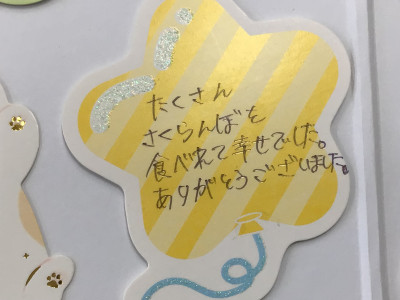 たくさん
さくらんぼを
食べれて幸せでした。
ありがとうございました。